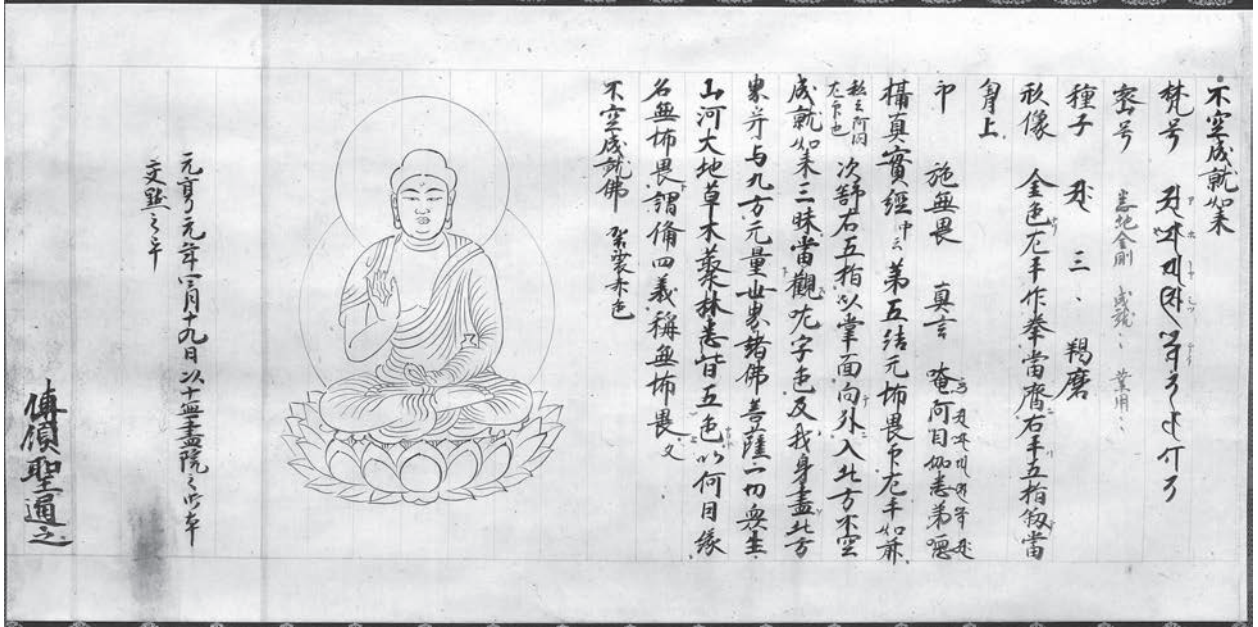 不空成就如来
梵号
密号 悉地金剛 成就〻 業用〻
種子 三〻 羯磨
形像 金色左手作拳當齊右手五指當
胷上
印 施無畏 真言 唵阿目伽悉第噁
攝真實經中云 第五結无怖畏印左手如前
次舒右五指以掌面向外入北方不空
成就如来三昧當觀字色及我身盡北方
界并与九方无量世界諸佛菩薩一切衆生
山河大地草木藂林悉皆五色以何因縁
名無怖畏謂脩四義稱無怖畏文
不空成就佛 袈裟赤色
元亨元年三月十九日以十無盡院之御本
交點之畢
傳領聖通之